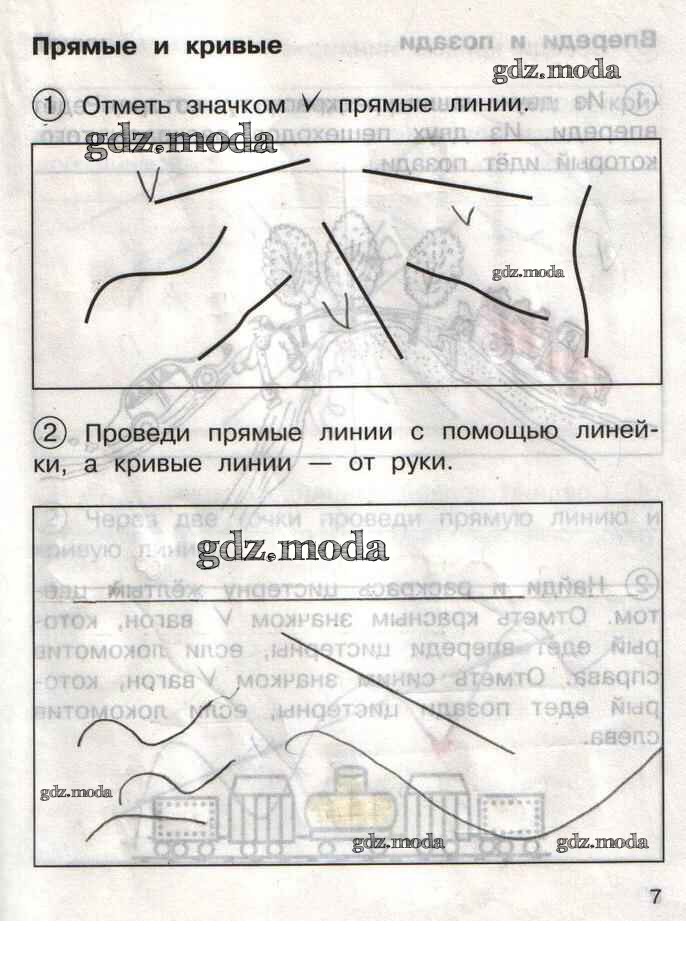 Прямые и кривые
gdz.moda
1 Отметь значком V прямые линии.
gdz.moda
gdz.moda
2 Проведи прямые линии с помощью линей-
ки, а кривые линии — от руки.
gdz.moda
gdz.moda
gdz.moda
gdz.moda
7